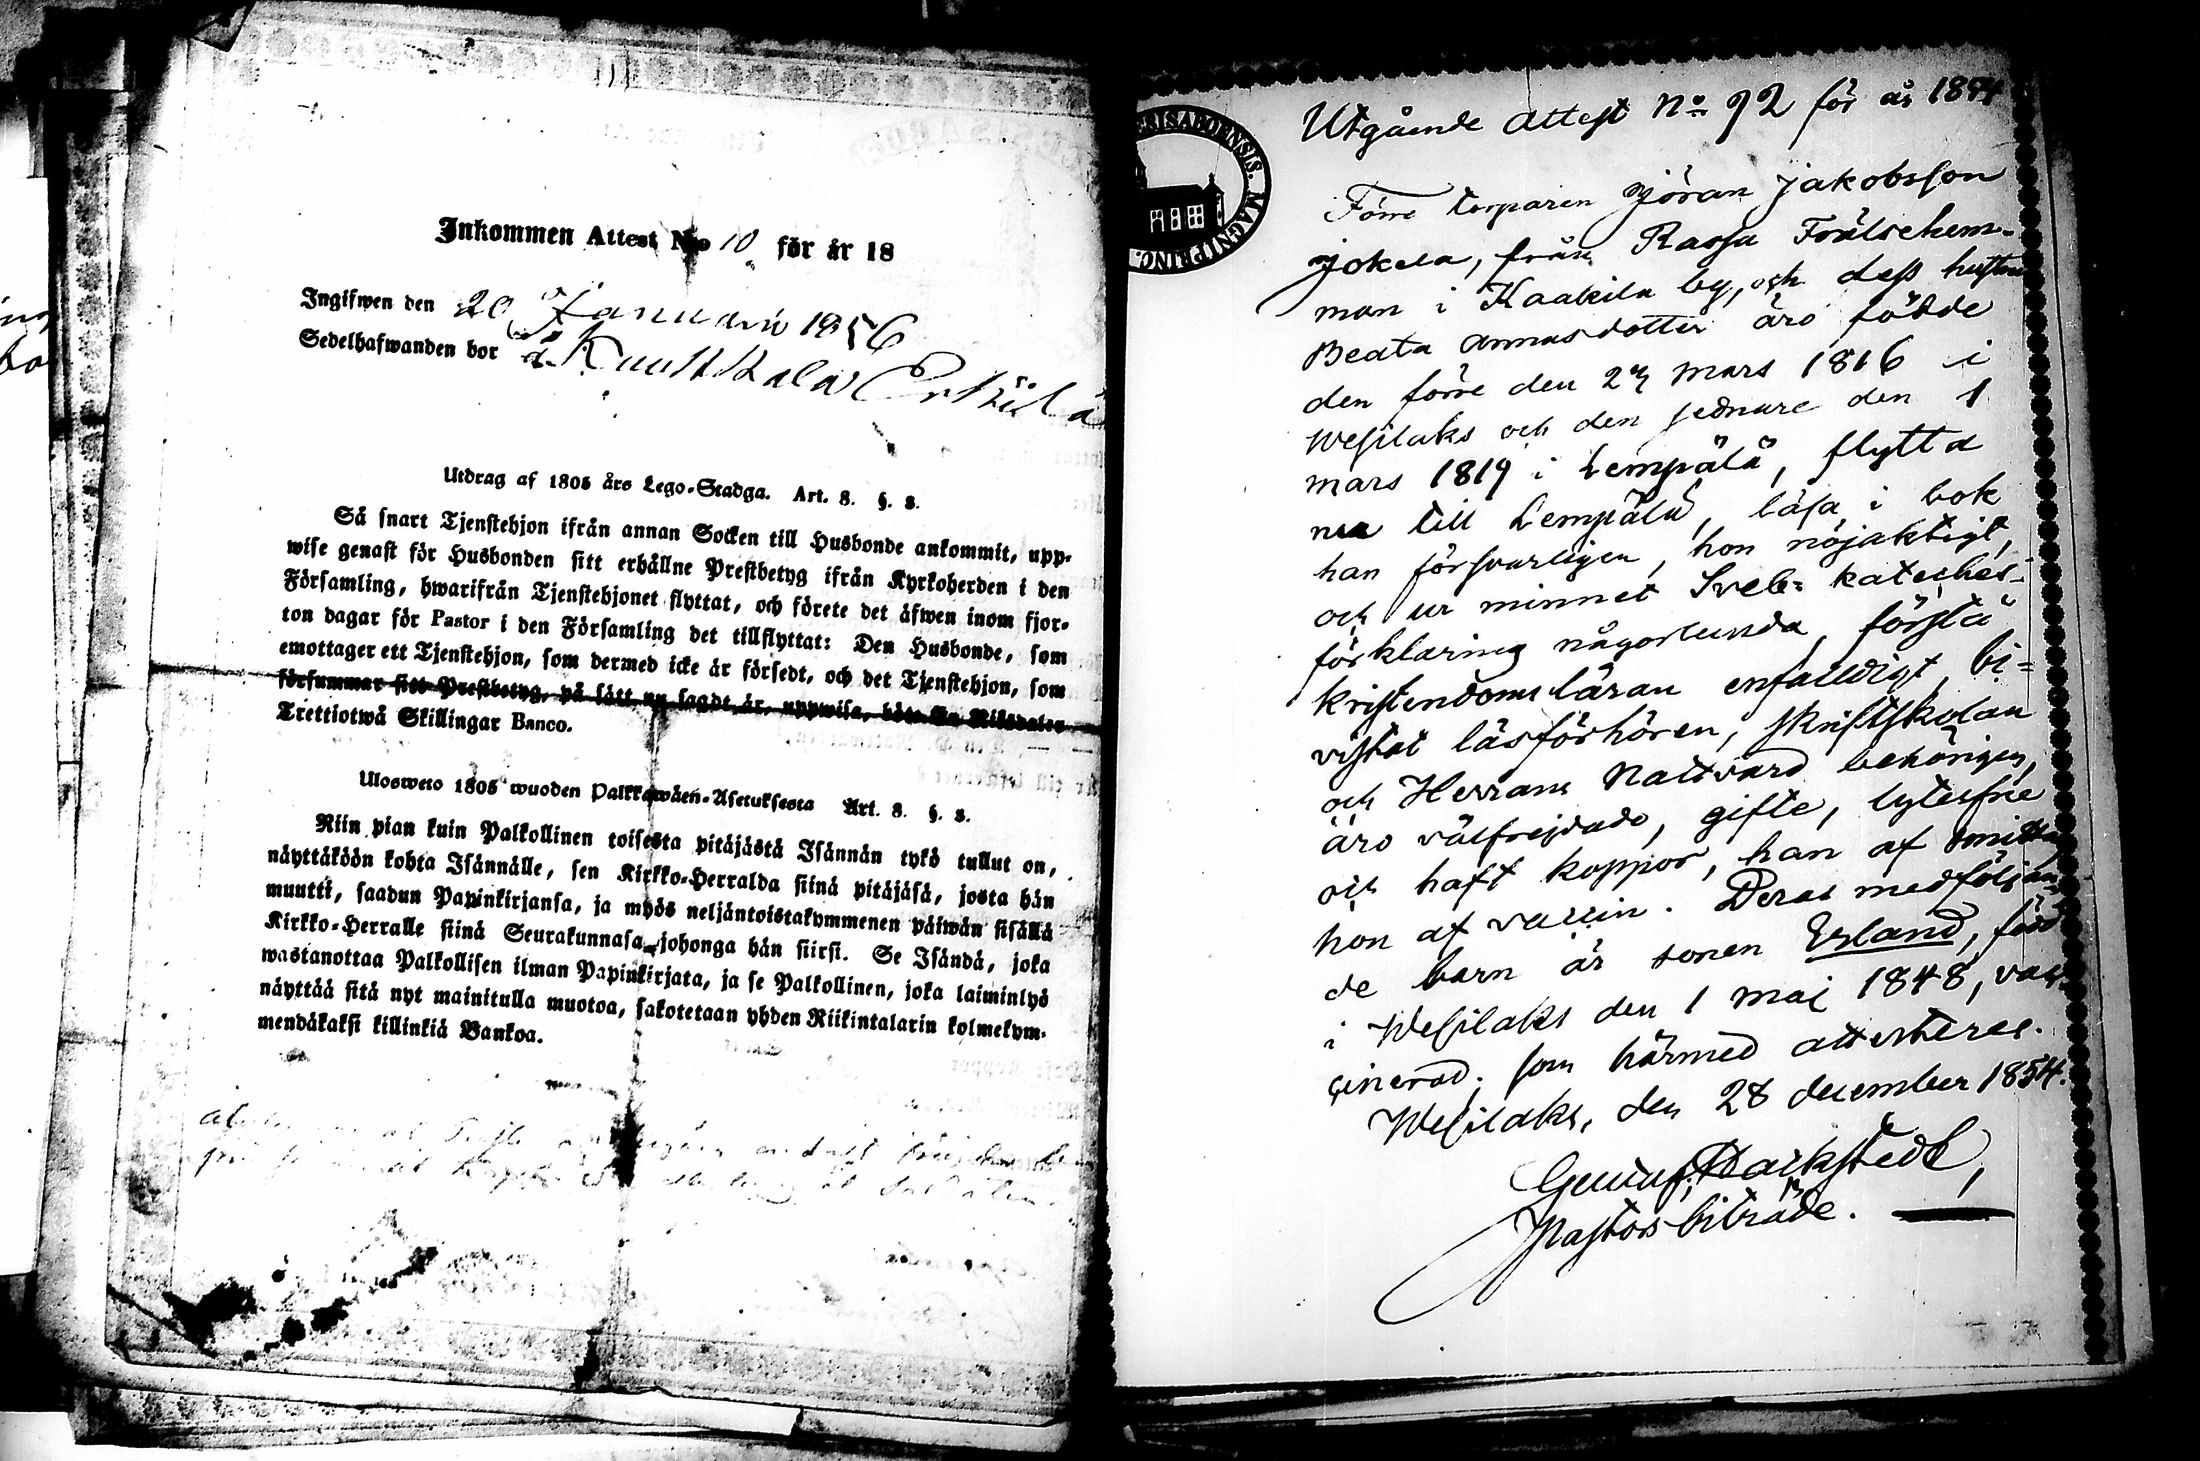 Inkommen Attest N:o 10 för år 18
Ingifwen den 20 Januarii 1856
Sedelhafwanden bor
Utdrag af 1805 års Lego-Stadga. Art. 8. §. 3.
Så snart Tjenstehjon ifrån annan Socken till Husbonde ankommit, upp-
wise genast för Husbonden sitt erhållne Prestbetyg ifrån Kyrkoherden i den
Församling, hwarifrån Tjenstehjonet flyttat, och förete det äfwen inom fjor-
ton dagar för Pastor i den Församling det tillflyttat: Den Husbonde, som
emottager ett Tjenstehjon, som dermed icke är försedt, och det Tjenstehjon, som
försummar sitt Prestbetyg, på sätt nu sagdt är, uppwisa, böte En Riksdaler
Trettiotwå Skillingar Banco.
Ulosweto 1805 wuoden Palkkawäen-Asetuksesta Art. 8. §. 3.
Niin pian kuin Palkollinen toisesta pitäjästä Isännän tykö tullut on,
näyttäköön kohta Isännälle, sen Kirkko-Herralda siinä pitäjäsä, josta hän
muutti, saadun Papinkirjansa, ja myös neljäntoistakymmenen päiwän sisällä
Kirkko-Herralle siinä Seurakunnasa johonga hän siirsi. Se Isändä, joka
wastanottaa Palkollisen ilman Papinkirjata, ja se Palkollinen, joka laiminlyö
näyttää sitä nyt mainitulla muotoa, sakotetaan yhden Riikintalarin kolmekym-
mendäkaksi killinkiä Bankoa.
Utgående attest No 92 för år 1854
Förre torparen Jöran Jakobsson
Jokela, från Rassa Frälsehem-
man i Kaakila by, och dess hustru
Beata Annasdotter äro födde
den förre den 27 mars 1816 i
Wesilaks och den sednare den 1
mars 1819 i Lempälä, flytta
nu till Lempälä, läsa i bok
han försvarligen, hon nöjaktigt,
och ur minnet Sveb: kateches-
förklaring någorlunda, förstå
kristendomsläran enfalldigt, bi=
vistat läsförhören, skriftskolan
och Herrans Nattvard behörigen,
äro välfrejdade, gifte, lytesfrie
och haft koppor, han af smitta,
hon af vaccin. Deras medföljan-
de barn är sonen Erland, född
i Wesilaks den 1 maj 1848, vac-
cinerad; som härmed attesteras.
Wesilaks, den 28 december 1854.
Pastors biträde.